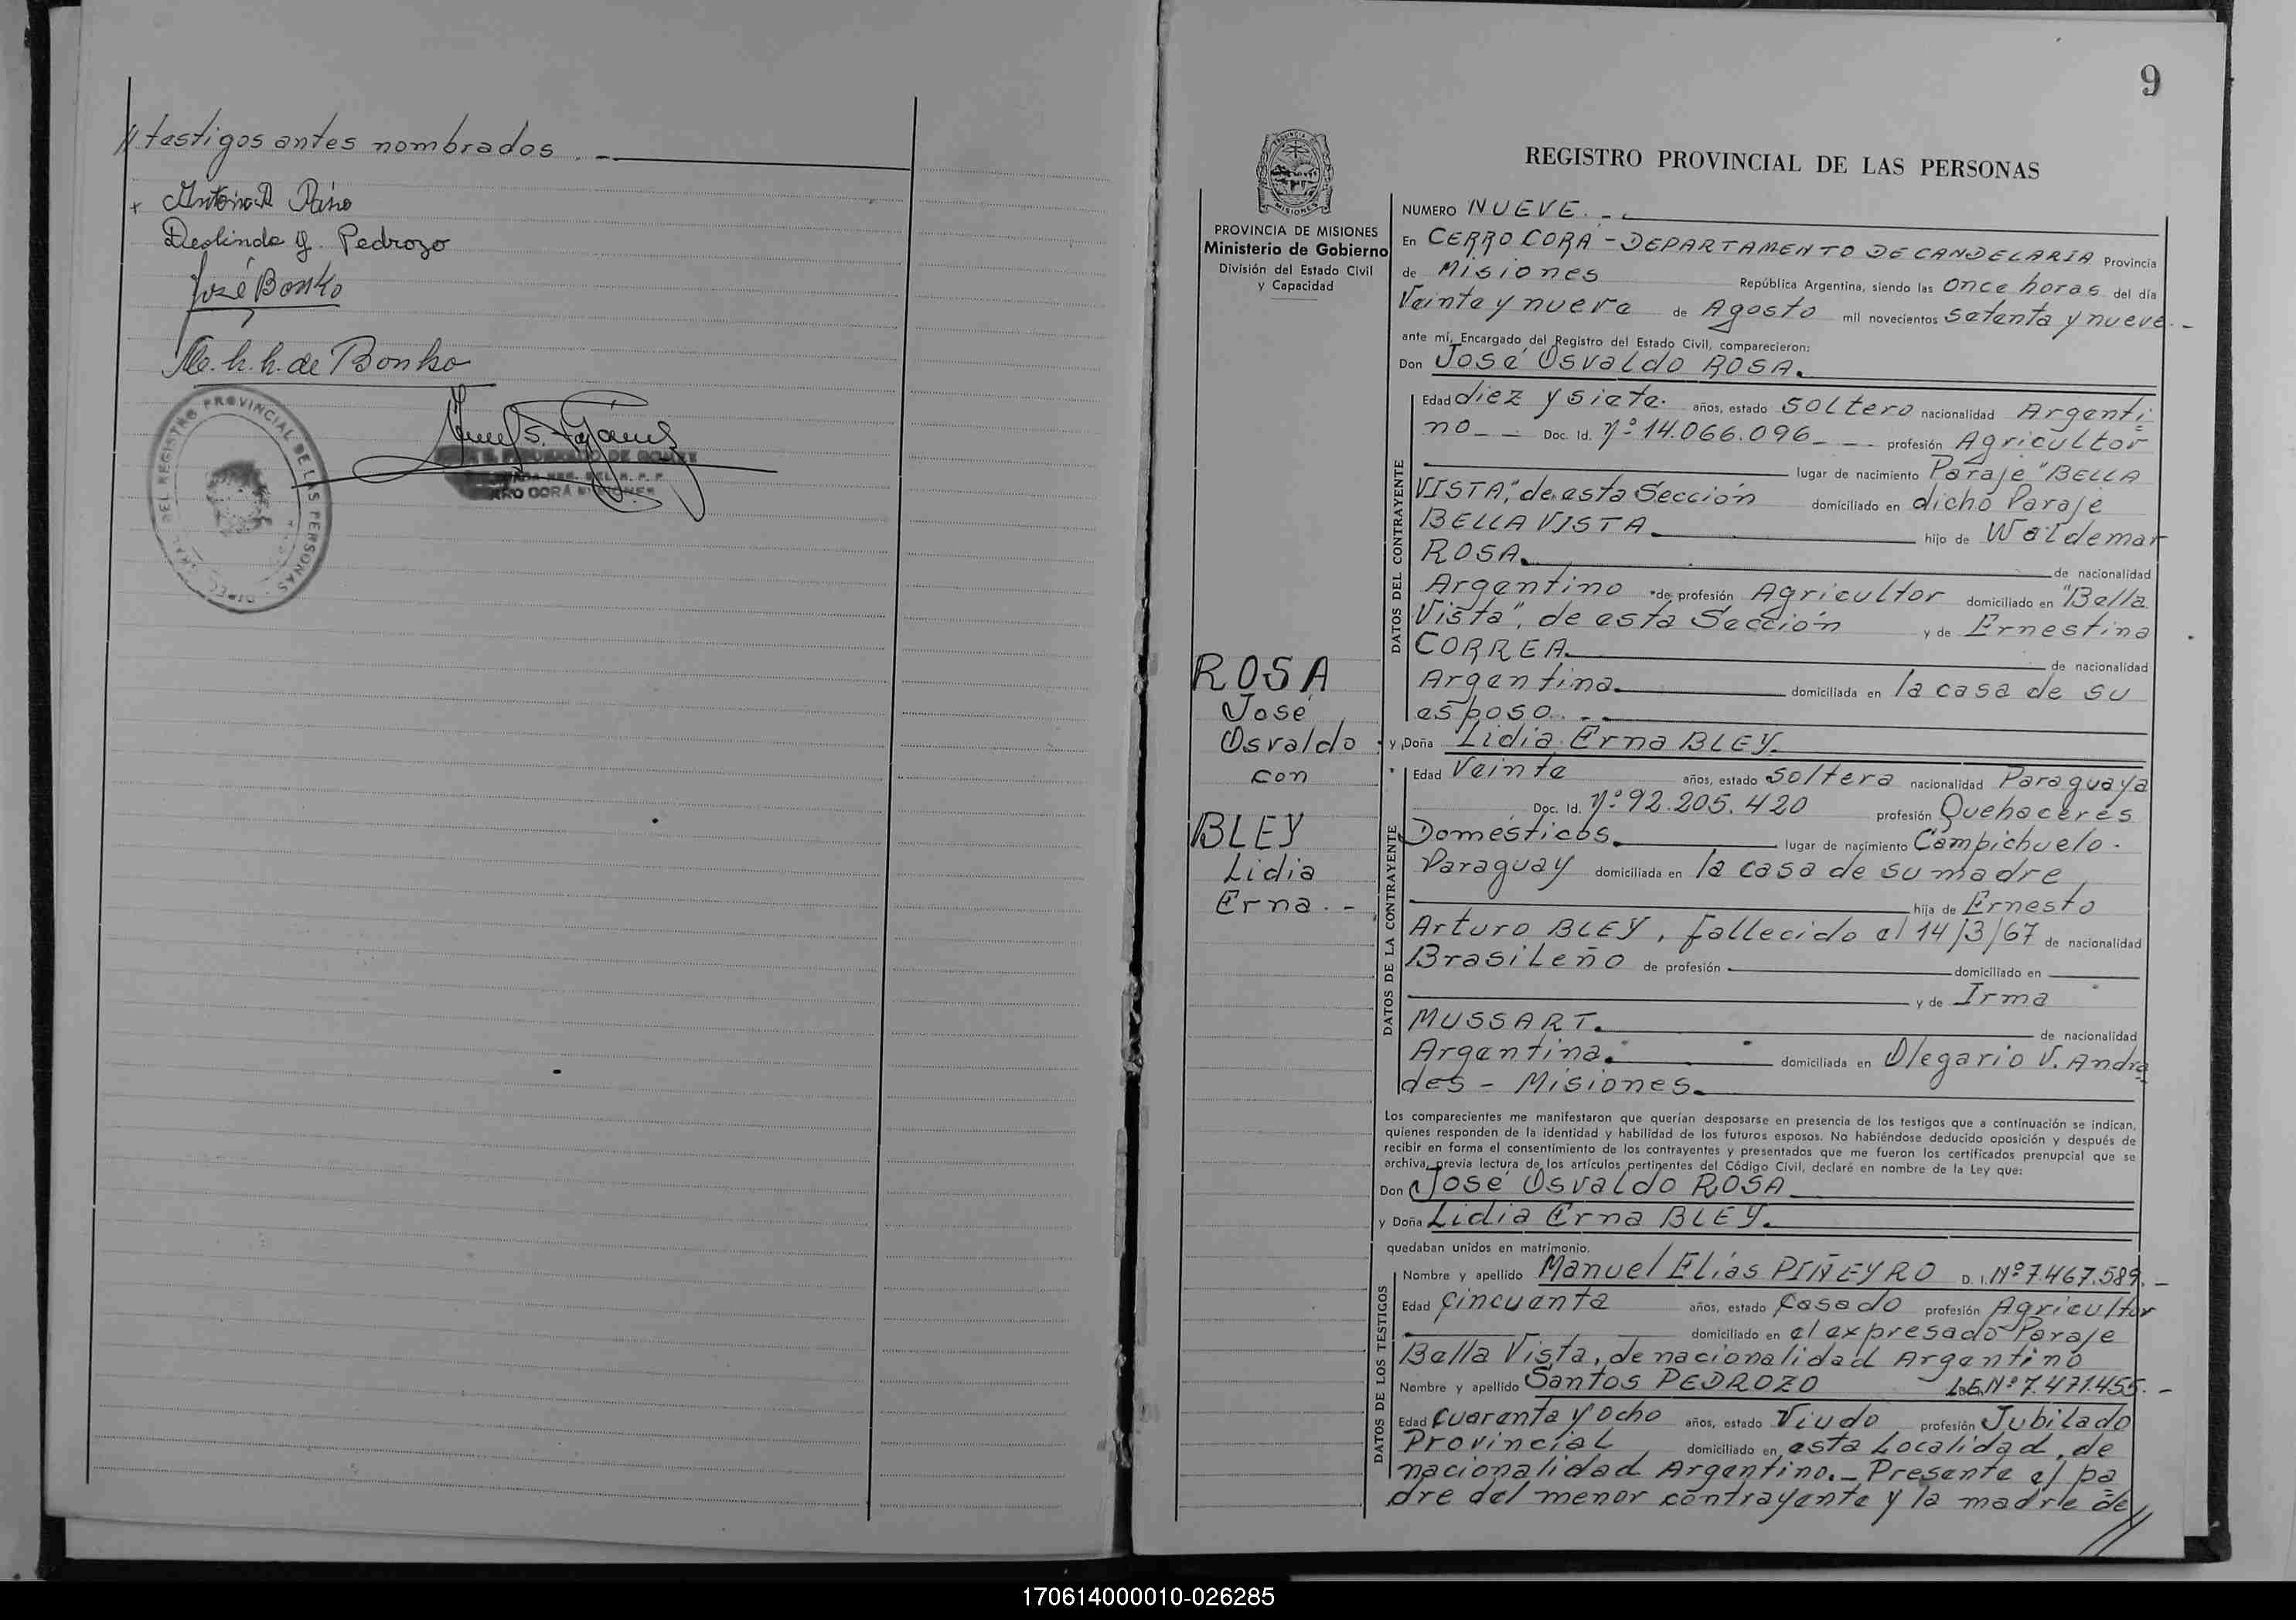 // testigos antes nombrados. -
+ Antonio A Paiso
Deolinda G. Pedrozo
José Bonko
M. h. h. de Bonko
REGISTRO PROVINCIAL DE LAS PERSONAS
CERRO CORÁ MISIONES
9
REGISTRO PROVINCIAL DE LAS PERSONAS
MISIONES
PROVINCIA DE MISIONES
Ministerio de Gobierno
División del Estado Civil
y Capacidad
NUMERO NUEVE. - .
En CERRO CORÁ - DEPARTAMENTO DE CANDELARIA Provincia
de Misiones República Argentina, siendo las once horas del día
Veinte y nueve de Agosto mil novecientos setenta y nueve. -
ante mí, Encargado del Registro del Estado Civil, comparecieron:
Don José Osvaldo ROSA.
DATOS DEL CONTRAYENTE
Edad diez y siete. años, estado soltero nacionalidad Argenti=
no - - Doc. Id. Nº 14.066.096 - - profesión Agricultor
lugar de nacimiento Paraje "BELLA
VISTA", de esta Sección domiciliado en dicho Paraje
BELLA VISTA. hijo de Waldemar
ROSA. de nacionalidad
Argentino de profesión Agricultor domiciliado en "Bella
Vista", de esta Sección y de Ernestina
CORREA. de nacionalidad
Argentina. domiciliada en la casa de su
esposo. - .
ROSA
José
Osvaldo
con
BLEY
Lidia
Erna. -
y Doña Lidia Erna BLEY.
DATOS DE LA CONTRAYENTE
Edad Veinte años, estado soltera nacionalidad Paraguaya
Doc. Id. Nº 92.205.420 profesión Quehaceres
Domésticos. lugar de nacimiento Campichuelo -
Paraguay domiciliada en la casa de su madre
hija de Ernesto
Arturo BLEY, fallecido el 14/3/67 de nacionalidad
Brasileño de profesión domiciliado en
y de Irma
MUSSART. de nacionalidad
Argentina. domiciliada en Olegario V. Andra
des - Misiones.
Los comparecientes me manifestaron que querían desposarse en presencia de los testigos que a continuación se indican,
quienes responden de la identidad y habilidad de los futuros esposos. No habiéndose deducido oposición y después de
recibir en forma el consentimiento de los contrayentes y presentados que me fueron los certificados prenupcial que se
archiva, previa lectura de los artículos pertinentes del Código Civil, declaré en nombre de la Ley que:
Don José Osvaldo ROSA
y Doña Lidia Erna BLEY.
quedaban unidos en matrimonio.
DATOS DE LOS TESTIGOS
Nombre y apellido Manuel Elías PIÑEYRO D. I. Nº 7.467.589. -
Edad Cincuenta años, estado Casado profesión Agricultor
domiciliado en el expresado Paraje
Bella Vista, de nacionalidad Argentino
Nombre y apellido Santos PEDROZO L.E. Nº 7.471.455. -
Edad Cuarenta y ocho años, estado Viudo profesión Jubilado
Provincial domiciliado en esta Localidad, de
nacionalidad Argentino. - Presente el pa
dre del menor contrayente y la madre de
//
170614000010-026285